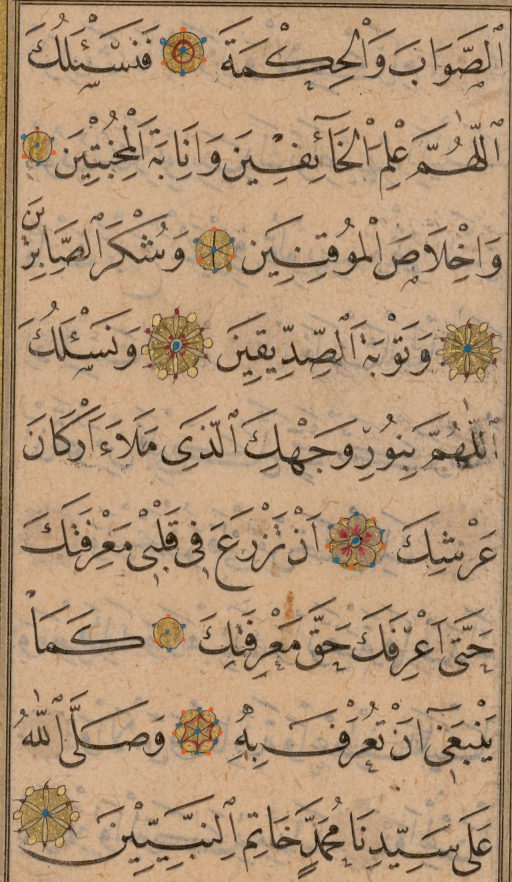 اَلصَّوَابَ وَالْحِكْمَةَ فَنَسْئَلُكَ
اَللّٰهُمَّ عِلْمَ الْخَآئِفِينَ وَاِنَابَةَ الْمُخْبِتِينَ
وَاِخْلَاصَ الْمُوقِنِينَ وَشُكْرَ الصَّابِرِينَ
وَتَوْبَةَ الصِّدِّيقِينَ وَنَسْئَلُكَ
اَللّٰهُمَّ بِنُورِ وَجْهِكَ الَّذِى مَلَاءَ اَرْكَانَ
عَرْشِكَ اَنْ تَزْرَعَ فِى قَلْبِى مَعْرِفَتَكَ
حَتّٰى اَعْرِفَكَ حَقَّ مَعْرِفَتِكَ كَمَا
يَنْبَغِى اَنْ تُعْرَفَ بِهِ وَصَلَّى اللّٰهُ
عَلٰى سَيِّدِنَا مُحَمَّدٍ خَاتِمِ النَّبِيِّينَ